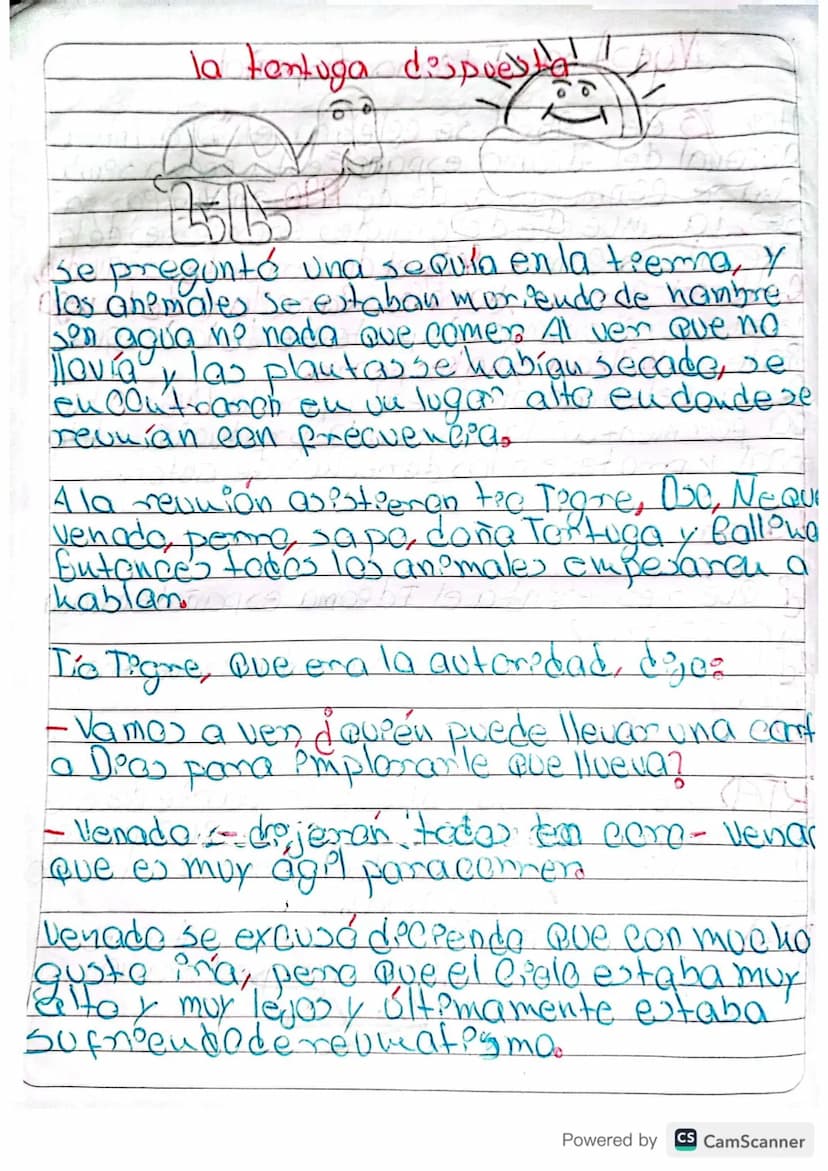 la tortuga dispuesta
se preguntó una sequía en la tierra, y
los animales se estaban muriendo de hambre
sin agua ni nada que comer. Al ver que no
llovía y las plantas se habían secado, se
encontraron en un lugar alto en donde se
reunían con frecuencia.
A la reunión asistieron tio Tigre, Oso, Ñeque
venado, perro, sapo, doña Tortuga y Gallina
Entonces todos los animales empesaron a
hablar.
Tío Tigre, que era la autoridad, dijo:
- Vamos a ver, ¿quién puede llevar una cart
a Dios para implorarle que llueva?
- Venado - dijeron todos en coro - vena
que es muy ágil para correr.
Venado se excusó diciendo que con mucho
gusto iría, pero que el cielo estaba muy
alto y muy lejos y últimamente estaba
sufriendo de reumatismo.
Powered by CS CamScanner